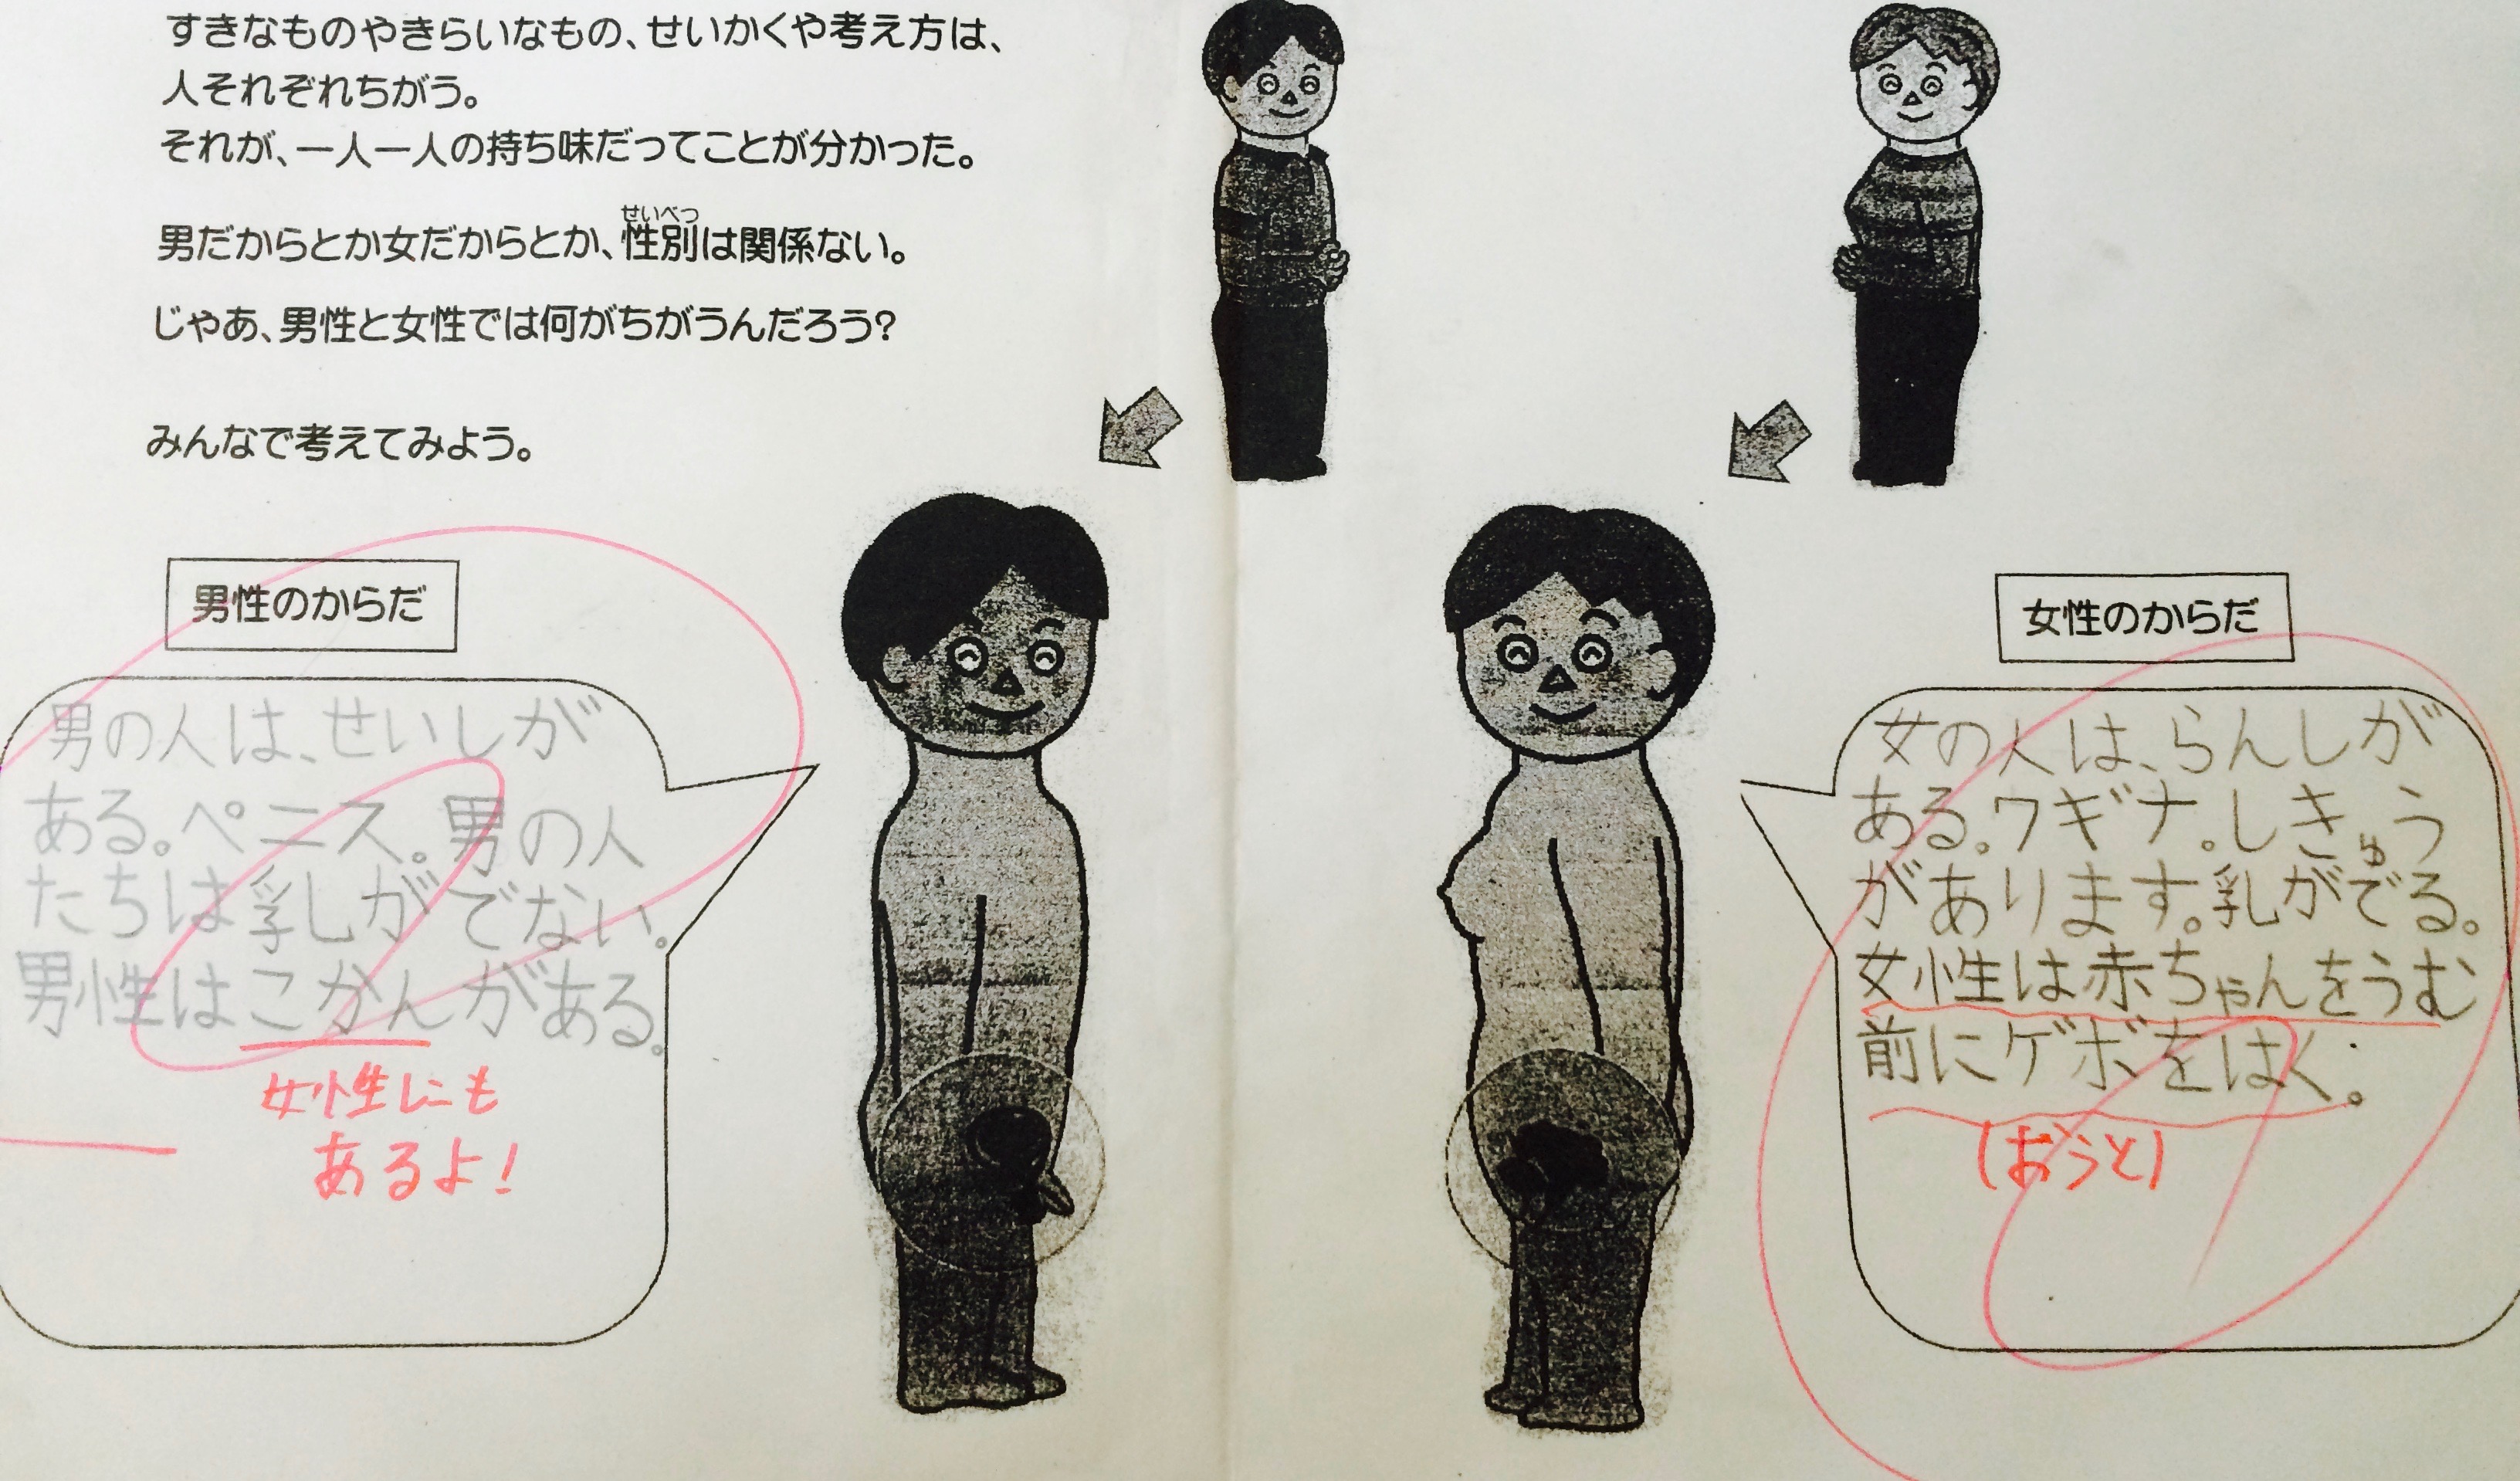 すきなものやきらいなもの、せいかくや考え方は、
人それぞれちがう。
それが、一人一人の持ち味だってことが分かった。
せいべつ
男だからとか女だからとか、性別は関係ない。
じゃあ、男性と女性では何がちがうんだろう?
みんなで考えてみよう。
男性のからだ
男の人は、せいしが
ある。ペニス。男の人
たちは乳しがでない。
男性はこかんがある。
女性にも
あるよ!
女性のからだ
女の人は、らんしが
ある。ワギナ。しきゅう
があります。乳がでる。
女性は赤ちゃんをうむ
前にゲボをはく。
(おうと)